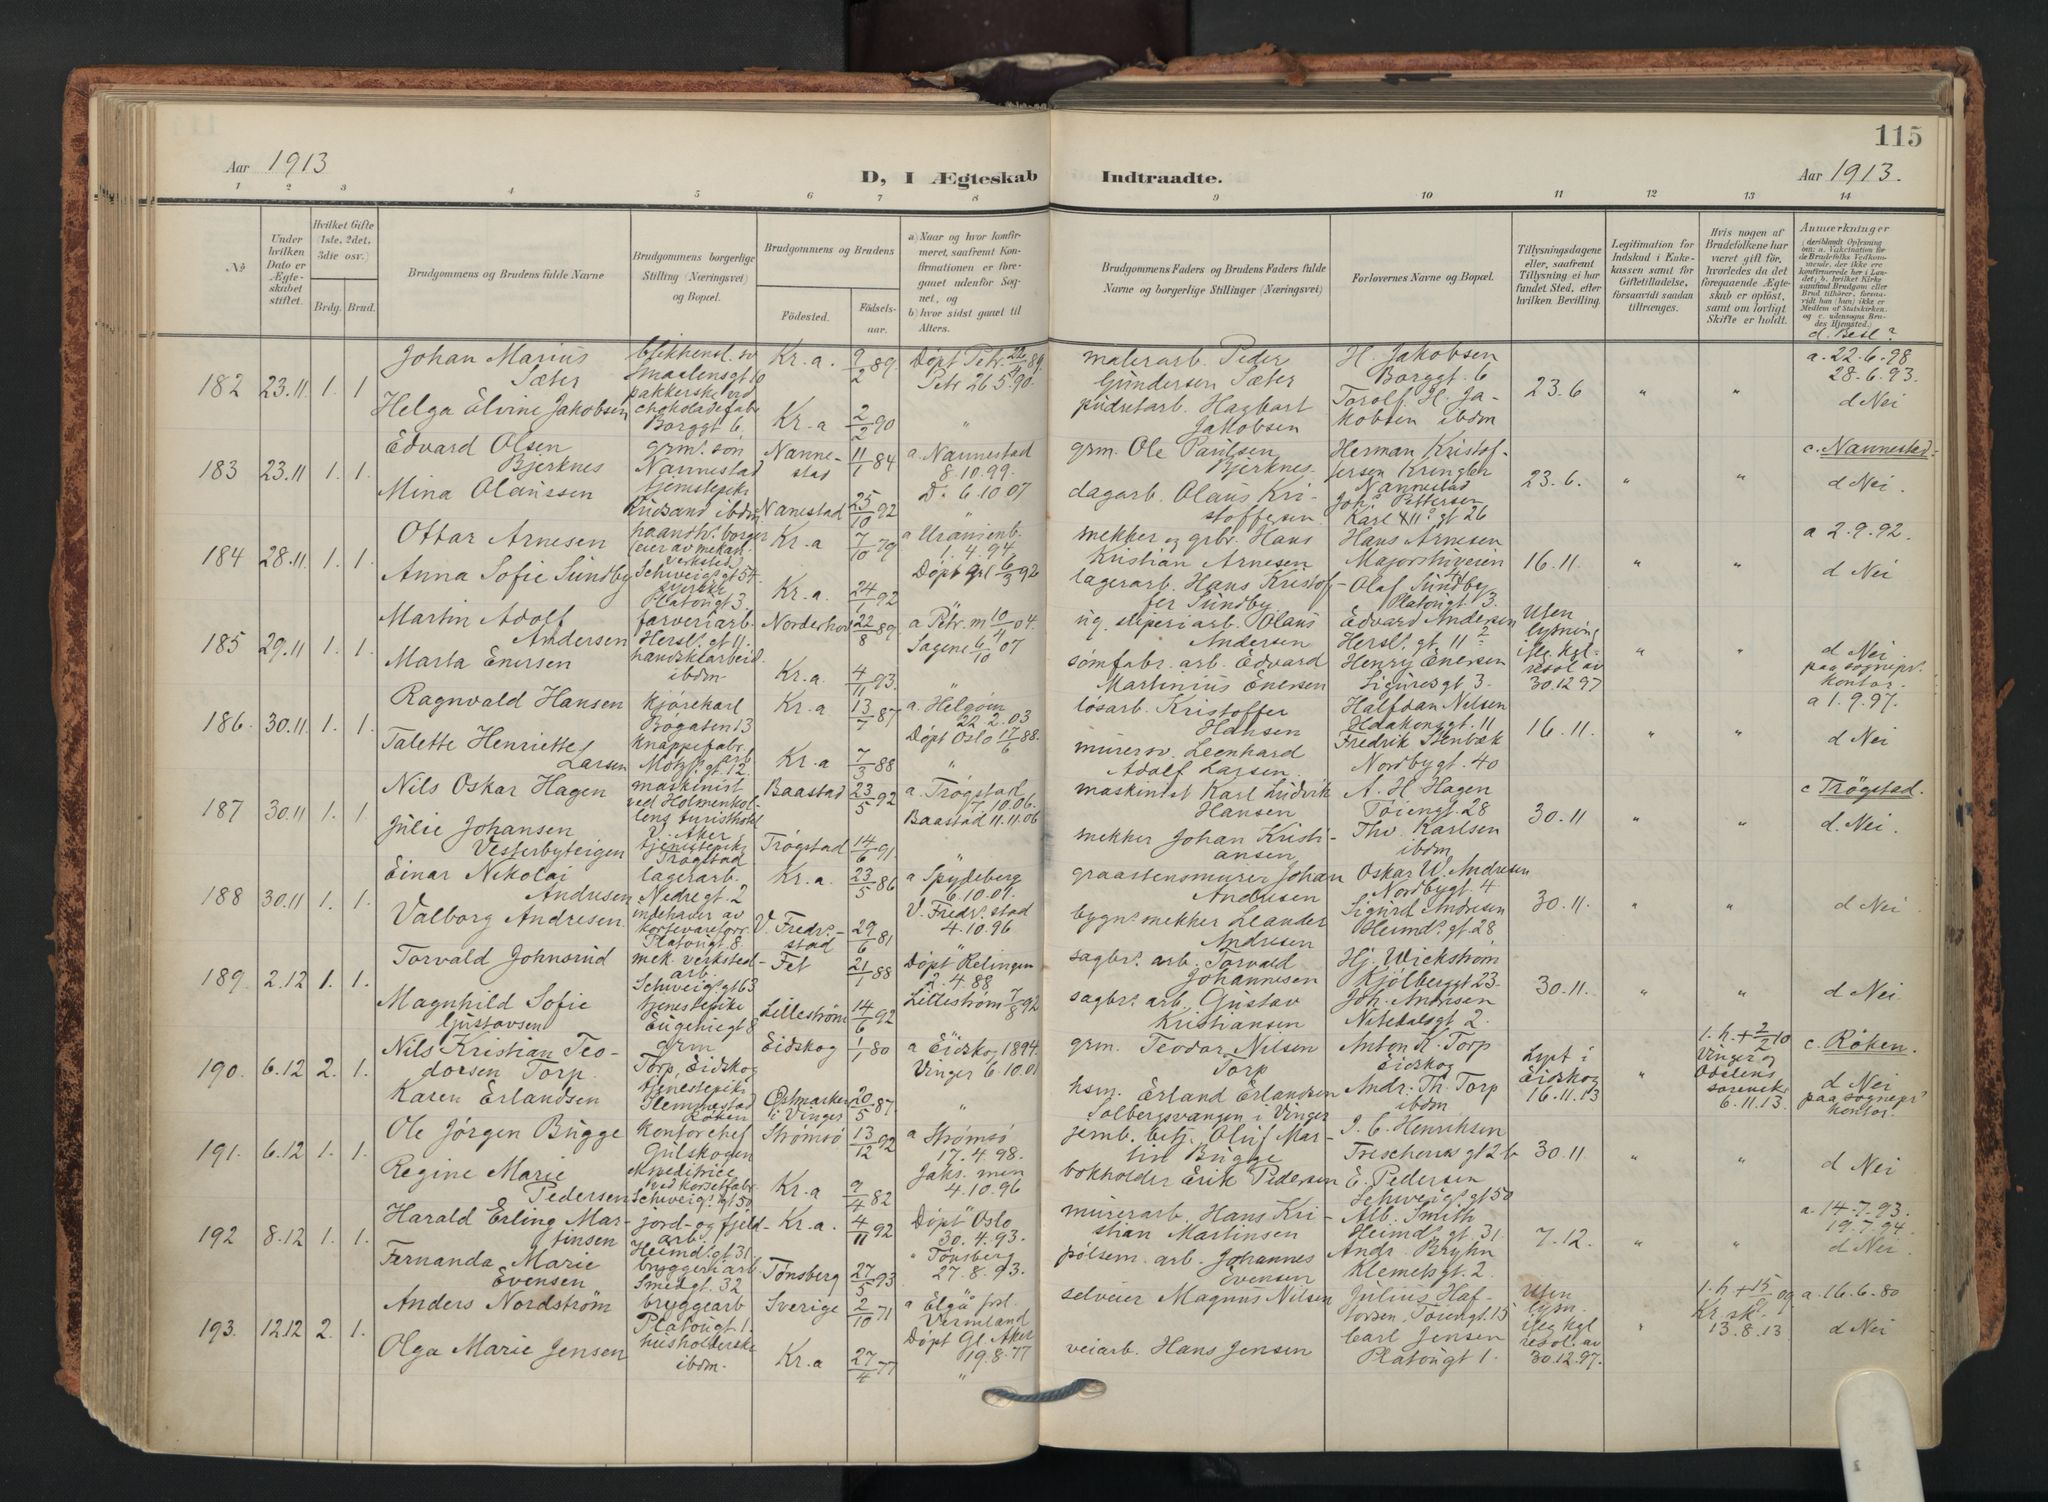 115
Aar 1913
D, I Ægteskab Indtraadte.
Aar 1913.
1 2 3 4 5 6 7 8 9 10 11 12 13 14
No
Under hvilken Dato er Ægteskabet stiftet.
Hvilket Gifte (1ste, 2det, 3die osv.)
Brdg. Brud.
Brudgommens og Brudens fulde Navne
Brudgommens borgerlige Stilling (Næringsvei) og Bopæl.
Brudgommens og Brudens
Födested.
Födselsaar.
a) Naar og hvor konfirmeret, saafremt Konfirmationen er foregaaet udenfor Sognet, og
b) hvor sidst gaaet til Alters.
Brudgommens Faders og Brudens Faders fulde Navne og borgerlige Stillinger (Næringsvei)
Forlovernes Navne og Bopæl.
Tillysningsdagene eller, saafremt Tillysning ei har fundet Sted, efter hvilken Bevilling.
Legitimation for Indskud i Enkekassen samt for Giftetilladelse, forsaavidt saadan tiltrænges.
Hvis nogen af Brudefolkene har været gift för, hvorledes da det foregaaende Ægteskab er oplöst, samt om lovligt Skifte er holdt.
Anmærkninger
d. Besl?
182 23.11 1. 1
Johan Marius Sæter
Smaalensgt 10
Kr.a. 9/2 89
Døpt Petr. 89.
Petr 26.5.90.
malerarb. Peder Gundersen Sæter
H. Jakobsen Borggt. 6
23.6 " "
a. 22.6.98
28.6.93.
d Nei
Helga Elvine Jakobsen
pakkerske ved chokoladefabr Borggt 6.
Kr.a 2/2 90
"
pudretarb. Hagbart Jakobsen
Torolf H. Jakobsen ibdm
183 23.11 1. 1.
Edvard Olsen Bjerknes
grms. søn Nannestad
Nannestad 11/1 84
a. Nannestad 8.10.99.
grm. Ole Paulsen Bjerknes
Herman Kristoffersen Kringler Nannestad
23.6. " "
c. Nannestad.
d Nei.
Mina Olaussen
tjenestepike ibdm.
Nanestad 25/10 92
Do 6.10.07
"
dagarb. Olaus Kristoffersen
Johs Pettersen Karl XII's gt 26
184 28.11 1. 1.
Ottar Arnesen
haandv. borger (eier av mekan. verksted) Schweigs gt 54.
Kr.a 7/10 79
a Uranienb. 1.4.94.
mekker og grbr. Hans Kristian Arnesen
Hans Arnesen Majorstuveien
16.11. " "
a 2.9.92.
d Nei
Anna Sofie Sundby
syerske Platousgt 3.
Kr.a. 24/1 92
Døpt Grl 6/3 92
"
lagerarb. Hans Kristoffer Sundby
Olaf Sundby Platougt 3.
185 29.11 1. 1.
Martin Adolf Andersen
farveriarb. Hersl. gt. 11.
Norderhov 22/8 89.
a Petr. m 10/4 04.
ug. sliperiarb. Olaus Andersen
Edvard Andersen Hersl. gt 11
Uten lysning iflg. kgl. resol av 30.12 97
" "
d Nei
paa sognepr. kontor.
Marta Enersen
handskearbeid. ibdm.
Kr.a. 4/11 93.
Sagene 6/10 07
"
sømfabr. arb. Edvard Martinius Enersen
Henry Enersen Sigurdsgt 3.
186. 30.11 1. 1.
Ragnvald Hansen
kjørekarl Bøgaten 13
Kr.a 13/7 87
a. Helgøen 22.2.03
løsarb. Kristoffer Hansen
Halfdan Nilsen Haakonsgt. 11
16.11. " "
a 1.9.97.
d Nei
Talette Henriette Larsen
knappefabr. arb Motzf. gt. 12.
Kr.a 7/3 88
Døpt Oslo 17/6 88.
"
murersv. Leonhard Adolf Larsen.
Fredrik Stenbæk Nordbygt. 40
187 30.11 1. 1.
Nils Oskar Hagen
maskinist ved Holmenkollens turisthotel V. Aker
Baastad 23/5 92
a. Trøgstad 7.10.06.
maskinist Karl Ludvik Hansen
A. H. Hagen Töiengt. 28
30.11 " "
c Trøgstad.
d. Nei
Julie Johansen Vesterbyteigen
tjenestepike Trøgstad
Trøgstad 14/6 91.
Baastad 11.11.06
mekker Johan Kristiansen
Thv. Karlsen ibdm
188 30.11 1. 1.
Einar Nikolai Andresen
lagerarb. Nedregt. 2
Kr.a. 23/5 86
a Spydeberg 6.10.01.
graastensmurer Johan Andresen
Oskar W. Andresen Nordbygt. 4
30.11. " "
d Nei
Valborg Andresen
indehaver av kortevareforr. Platougt 8.
V. Fredr.stad 29/6 81
V. Fredr.stad 4.10.96
bygn. mekker Leander Andresen
Sigurd Andresen Heimd. gt. 28
189. 2.12 1. 1.
Torvald Johnsrud
mek. verkstedarb. Schweigs gt 63
Fet 21/1 88
Døpt Relingen 2.4.88
sagbr. arb. Torvald Johannesen
Hj. Wickstrøm Kjölberggt 23.
30.11. " "
d Nei
Magnhild Sofie Gustavsen
tjenestepike Eugeniegt 8
Lillestrøm 14/6 92
Lillestrøm 7/8 92
sagbr. arb. Gustav Kristiansen
Joh. Andresen Nitedalsgt 2.
190. 6.12 2. 1.
Nils Kristian Teodorsen Torp.
grm Torp, Eidskog
Eidskog 1/1 80
a Eidskog 1894.
grm. Teodor Nilsen Torp
Anton K. Torp Eidskog
Lyst i Eidskog 16.11.13
"
1. h. + 2/2 10
Vinger og Odalens sorenskr. 6.11.13.
c. Røken.
d Nei
paa sognepr. kontor.
Karen Erlandsen
tjenestepike Slemmestad Røken
Østmarken i Vinger 20/5 87.
Vinger 6.10.01
"
hsm. Erland Erlandsen Solbergsvangen i Vinger
Andr. Th. Torp ibdm
191. 6.12 1. 1.
Ole Jørgen Bugge
kontorchef Gulskogen
Strømsö 13/12 92
a Strømsö 17.4.98.
jernb. betj. Oluf Martin Bugge
I. C. Henriksen Treschows gt 2 b
30.11 " "
d Nei
Regine Marie Pedersen
ved korsetfabr. Schweigs gt 50
Kr.a 9/4 82
Jaks. men 4.10.96
bokholder Erik Pedersen
E. Pedersen Schweigs gt 50
192 8.12 1. 1.
Harald Erling Martinsen
jord- og fjeldarb. Heimd. gt 31
Kr.a. 4/11 92
Døpt Oslo 30.4.93.
murerarb. Hans Kristian Martinsen
Alb. Smith Heimd. gt. 31
7.12. " "
a. 14.7.93.
19.7.94.
d Nei
Fernanda Marie Evensen
bryggeriarb Smedgt. 32
Tønsberg 27/5 93
" Tønsberg 27.8.93.
pølsem. arb. Johannes Evensen
Andr. Bryhn Klemetsgt. 2.
193. 12.12 2. 1.
Anders Nordstrøm
bryggearb Platougt 1.
Sverige 2/10 71
a Elgå fors. Vermland
selveier Magnus Nilsen
Julius Haftorsen, Töiengt. 15
Uten lysn. iflg kgl resol. av 30.12.97.
"
1. h + 15/8 09
Kr. sk. 13.8.13
a. 16.6.80
d Nei
Olga Marie Jensen
husholderske ibdm.
Kr.a 27/4 77
Døpt Gl. Aker 19.8.77
"
veiarb. Hans Jensen
Carl Jensen Platougt 1.